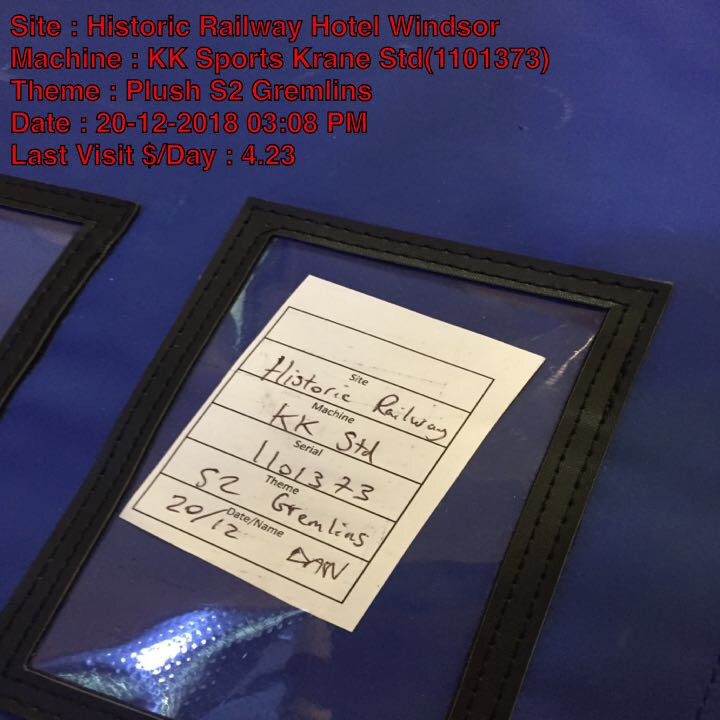 Site : Historic Railway Hotel Windsor
Machine : KK Sports Krane Std(1101373)
Theme : Plush S2 Gremlins
Date : 20-12-2018 03:08 PM
Last Visit $/Day : 4.23
Site
Historic Railway
Machine
KK Std
Serial
1101373
Theme
S2 Gremlins
Date/Name
20/12 DAN